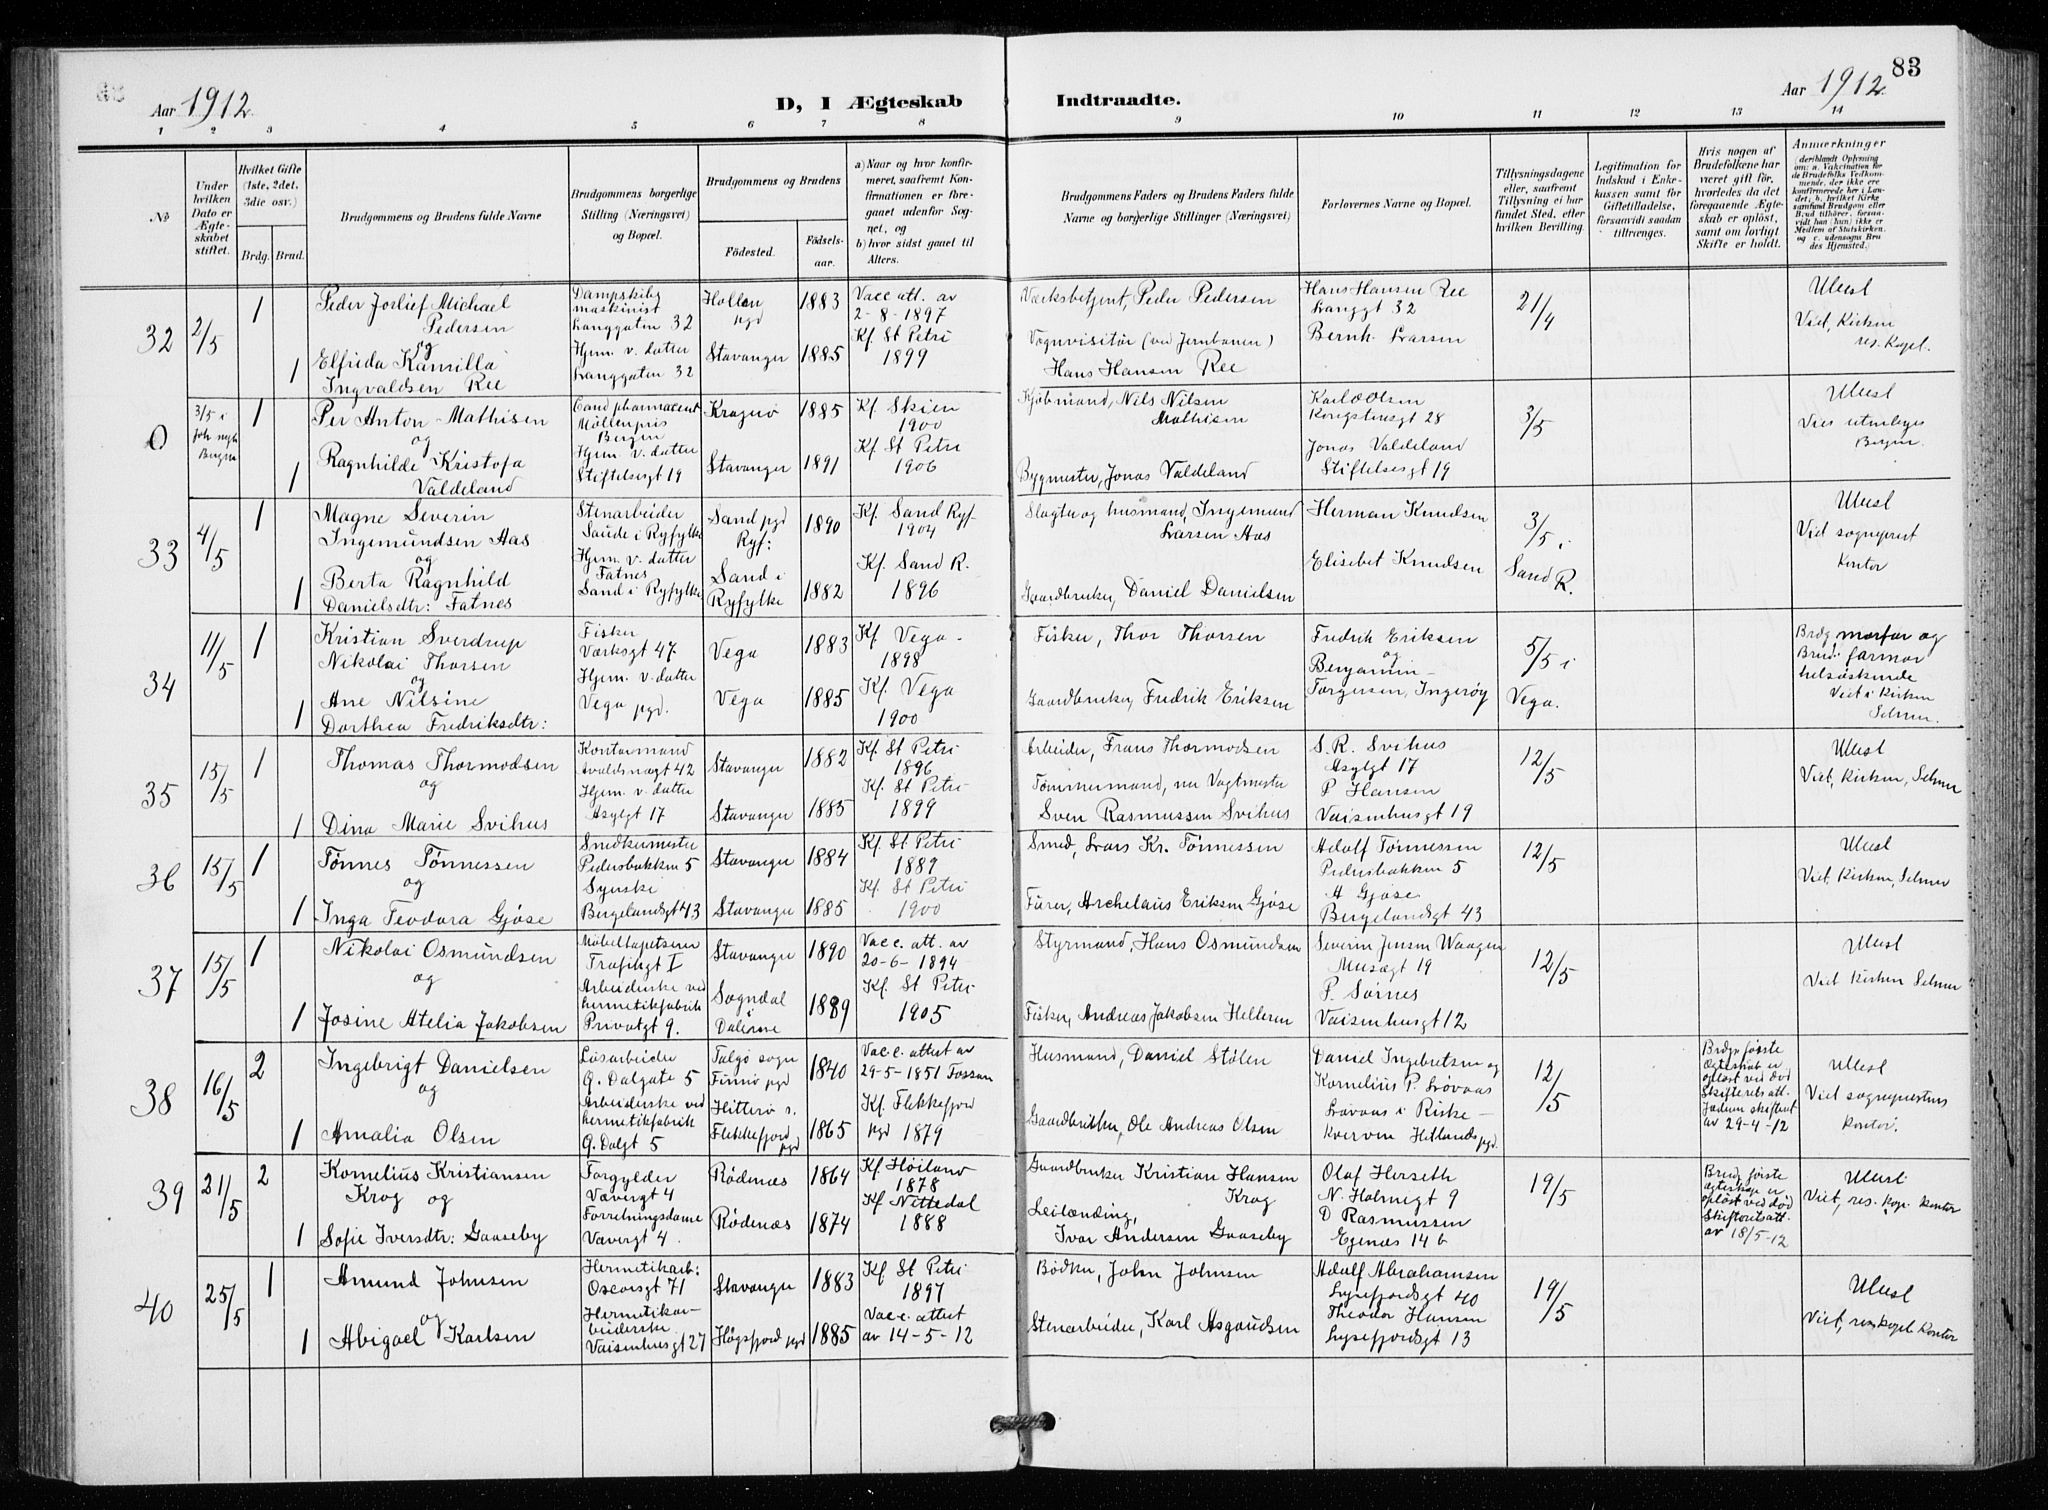 83
Aar 1912.
D, I Ægteskab Indtraadte.
Aar 1912.
1 2 3 4 5 6 7 8 9 10 11 12 13 14
No
Under hvilken Dato er Ægteskabet stiftet.
Hvilket Gifte (1ste, 2det, 3die osv.)
Brdg. Brud.
Brudgommens og Brudens fulde Navne
Brudgommens borgerlige Stilling (Næringsvei) og Bopæl.
Brudgommens og Brudens
Fødested.
Fødselsaar.
a) Naar og hvor konfirmeret, saafremt Konfirmationen er foregaaet udenfor Sognet, og
b) hvor sidst gaaet til Alters.
Brudgommens Faders og Brudens Faders fulde Navne og borgerlige Stillinger (Næringsvei)
Forlovernes Navne og Bopæl.
Tillysningsdagene eller, saafremt Tillysning ei har fundet Sted, efter hvilken Bevilling.
Legitimation for Indskud i Enkekassen samt for Giftetilladelse, forsaavidt saadan tiltrænges.
Hvis nogen af Brudefolkene har været gift før, hvorledes da det foregaaende Ægteskab er opløst, samt om lovligt Skifte er holdt.
Anmærkninger
(deriblandt Oplysning om: a. Vakcination for de Brudefolks Vedkommende, der ikke ere konfirmerede her i Landet; b. hvilket Kirkesamfund Brudgom eller Brud tilhører, forsaavidt han (hun) ikke er Medlem af Statskirken, og c. udensogns Brudes Hjemsted.
32
2/5
1
Peder Jorlief Michael
Pedersen
og
1
Elfrida Kamilla
Ingvaldsen Ree
Dampskibsmaskinist
Langgaten 32
Hjem. v. datter
Langgaten 32
Hollen pgd 1883
Stavanger 1885
Vacc att. av
2-8-1897
Kf. St Petri
1899
Værksbetjent, Peder Pedersen
Vognvisitør (ved Jernbanen)
Hans Hansen Ree
Hans Hansen Ree
Langgt 32
Bernh. Larsen
21/4
Ulæst
Viet, Kirken
res. Kapel.
0
3/5 i
Bergen
1
Per Anton Mathisen
og
1
Ragnhilde Kristofa
Valdeland
Cand pharmacent
Møllenpris
Bergen
Hjem. v. datter
Stiftelsesgt 19
Kragerø 1885
Stavanger 1891
Kf. Skien
1900
Kf. St Petri
1906
Kjøbmand, Nils Nilsen
Mathisen
Bygmester, Jonas Valdeland
Karl Olsen
Kongstensgt 28
Jonas Valdeland
Stiftelsesgt 19
3/5
Ulæst
Vies utenbyes
Bergen.
33
4/5
1
Magne Severin
Ingemundsen Aas
og
1
Berta Ragnhild
Danielsdtr: Fatnes
Stenarbeider
Saude i Ryfylke
Hjem. v. datter
Fatnes
Sand i Ryfylke
Sand pgd
Ryf: 1890
Sand i
Ryfylke 1882
Kf. Sand Ryf-
1904
Kf. Sand R.
1896
Slagter og husmand, Ingemund
Larsen Aas
Gaardbruker, Daniel Danielsen
Herman Knudsen
Elisebet Knudsen
3/5 i
Sand R.
Ulæst
Viet sogneprest
kontor
34
11/5
1
Kristian Sverdrup
Nikolai Thorsen
og
1
Ane Nilsine
Dorthea Fredriksdtr:
Fisker
Værksgt 47
Hjem. v. datter
Vega pgd.
Vega 1883
Vega 1885
Kf. Vega
1898
Kf. Vega
1900
Fisker, Thor Thorsen
Gaardbruker, Fredrik Eriksen
Fredrik Eriksen
og
Benjamin
Torgersen, Ingerøy
5/5 i
Vega.
Brdg morfar og
Brud. farmor
helsøskende
Viet i Kirken
Selmer.
35
15/5
1
Thomas Thormodsen
og
1
Dina Marie Svihus
Kontormand
Avaldsnæsgt 42
Hjem. v. datter
Asylgt 17
Stavanger 1882
Stavanger 1885
Kf. St Petri
1896
Kf. St Petri
1899
Arbeider, Frans Thormodsen
Tømmermand, nu Vagtmester
Sven Rasmussen Svihus
S. R. Svihus
Asylgt 17
P Hansen
Vaisenhusgt 19
12/5
Ulæst
Viet, Kirken, Selmer
36
15/5
1
Tønnes Tønnessen
og
1
Inga Teodora Gjøse
Snedkermester
Pedersbakken 5
Syerske
Bergelandsgt 43
Stavanger 1884
Stavanger 1885
Kf. St Petri
1889
Kf. St Petri
1900
Smed, Lars Kr. Tønnessen
Fører, Archelaus Eriksen Gjøse
Adolf Tønnessen
Pedersbakken 5
A Gjøse
Bergelandsgt 43
12/5
Ulæst
Viet, Kirken, Selmer
37
15/5
1
Nikolai Osmundsen
og
1
Josine Atelia Jakobsen
Møbeltapetserer
Trafikgt I
Arbeiderske ved
hermetikfabrik
Privatgt 9.
Stavanger 1890
Sogndal
Dalerne 1889
Vacc. att. av
20-6-1894
Kf. St Petri
1905
Styrmand, Hans Osmundsen
Fisker, Andreas Jakobsen Helleren
Severin Jensen Waagen
Musægt 19
P. Sørnes
Vaisenhusgt 12
12/5
Ulæst
Viet Kirken Selmer
38
16/5
2
Ingebrigt Danielsen
og
1
Amalia Olsen
Løsarbeider
G. Dalgate 5
Arbeiderske ved
hermetikfabrik
G. Dalgt 5
Talgø sogn
Finnø pgd 1840
Hitterø s.
Flekkefjord pgd 1865
Vacc. attest av
29-5-1851 Fossan
Kf. Flekkefjord
pgd 1879
Husmand, Daniel Stølen
Gaardbruker, Ole Andreas Olsen
Daniel Ingebretsen og
Kornelius P. Løvaas
Løvaas i Riske-
kverven Hetlands pgd.
12/5
Brdgs første
Ægteskab er
opløst ved død
Skifterets att.
Jæderen skifteret
av 29-4-12
Ulæst
Viet sogneprestens
kontor.
39
21/5
2
Kornelius Kristiansen
Krog og
1
Sofie Iversdtr: Gaaseby
Forgylder
Vævergt 4
Forretningsdame
Vævergt 4.
Rødenæs 1864
Rødenæs 1874
Kf. Høiland
1878
Kf Nittedal
1888
Gaardbruker Kristian Hansen
Krog
Leilænding,
Ivar Andersen Gaaseby
Olaf Herseth
N. Holmegt 9
D Rasmussen
Egenæs 14 b
19/5
Brud. første
ægteskap er
opløst ved død
Skifteretsatt.
av 18/5-12
Ulæst
Viet, res. kap. kontor
40
25/5
1
Amund Johnsen
og
1
Abigael Karlsen
Hermetikarb:
Oscarsgt 71
Hermetikar-
beiderske
Vaisenhusgt 27
Stavanger 1883
Høgsfjord pgd 1885
Kf. St Petri
1897
Vacc. attest
av 14-5-12
Bødker, John Johnsen
Stenarbeider, Karl Asgautsen
Adolf Abrahamsen
Lysefjordsgt 40
Theodor Hansen
Lysefjordsgt 13
19/5
Ulæst
Viet, res kapel. kontor